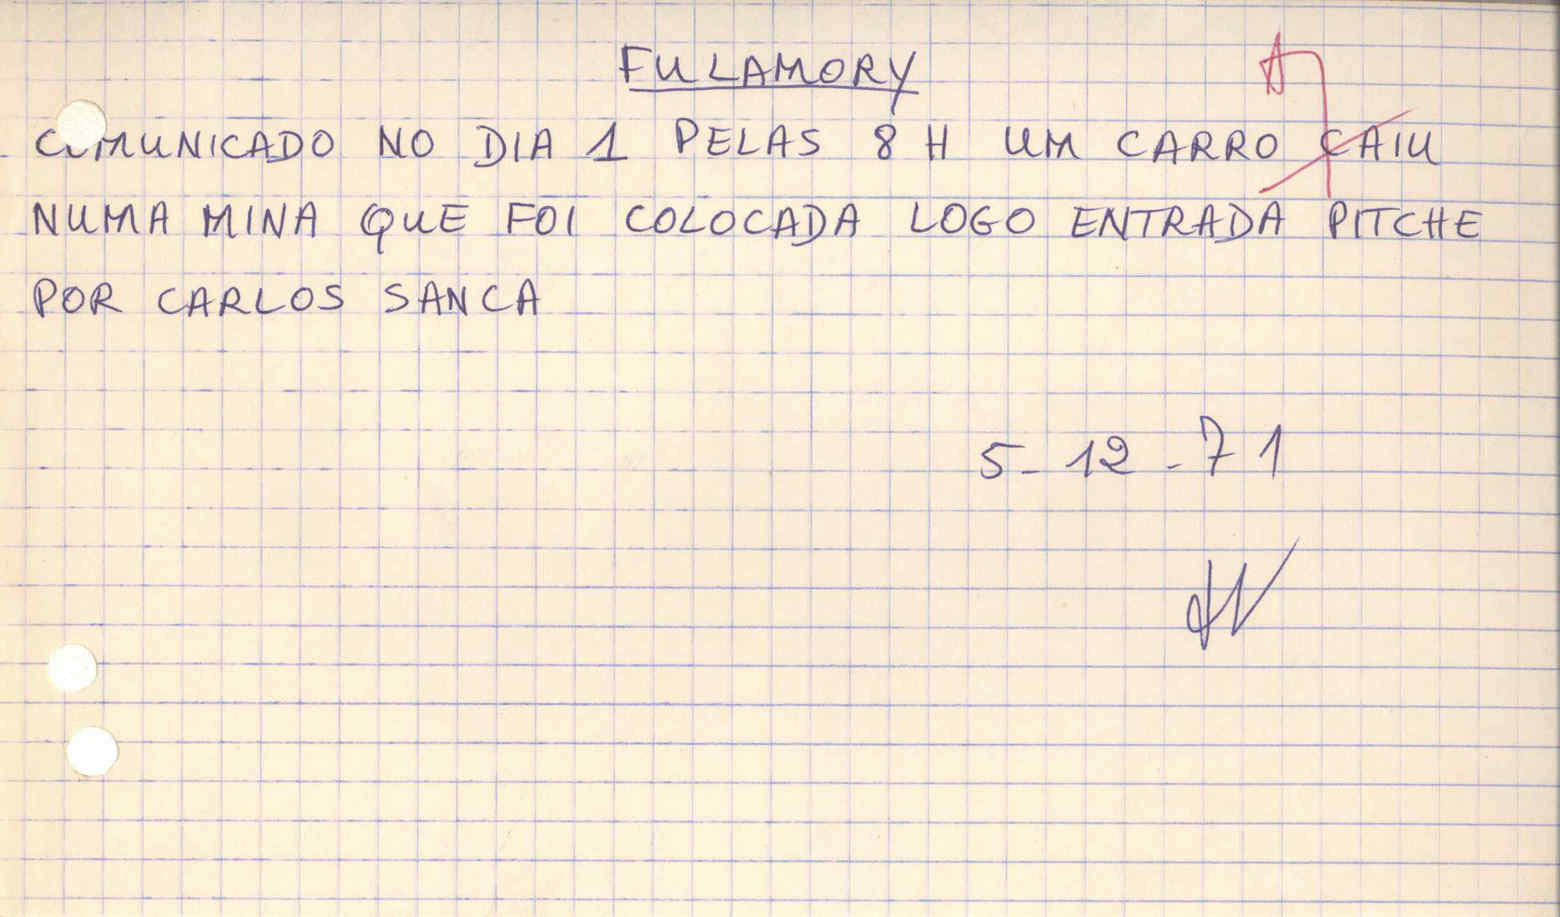 FULAMORY
COMUNICADO NO DIA 1 PELAS 8 H UM CARRO CAIU
NUMA MINA QUE FOI COLOCADA LOGO ENTRADA PITCHE
POR CARLOS SANCA
5-12-71